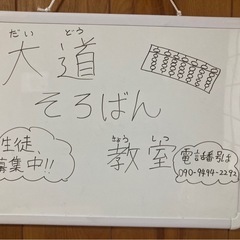 だい どう
大道
そろばん
きょう しつ
教室
生徒、
募集中!!
電話番号は
090-9894-2292